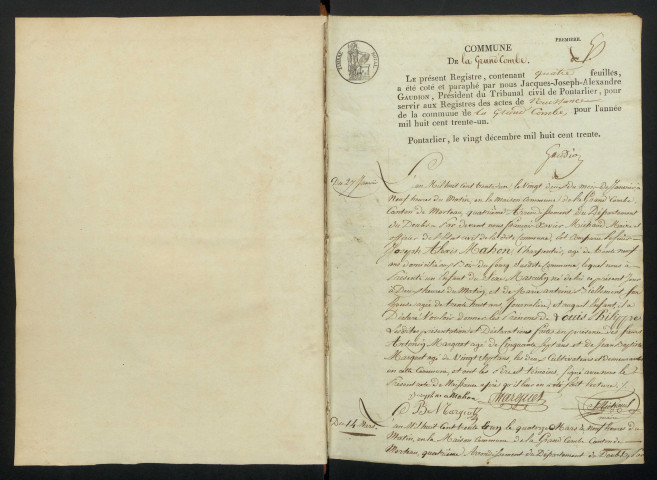 PREMIÈRE.
COMMUNE
DE la Grand'Combe.
LE présent Registre, contenant quatre feuilles,
a été coté et paraphé par nous Jacques-Joseph-Alexandre
GAUDION, Président du Tribunal civil de Pontarlier, pour
servir aux Registres des actes de Naissance
de la commune de la Grand'Combe, pour l'année
mil huit cent trente-un.
Pontarlier, le vingt décembre mil huit cent trente.
Gaudion
Du 27 Janvier
L'an mil huit cent trente un le vingt du mois de Janvier
Neuf heures du Matin, en la maison Commune de la Grand Combe
Canton de Morteau, quatrième Arrondissement du Département
du Doubs Par devant nous françois Maire et
officier de l'Etat civil de la dite Commune, Est Comparu
Joseph Alexis Mahon Charpentier, agé de trente neuf
ans domicilié au dite Commune, lequel nous a
Présenté un Enfant du Sexe Masculin né
à Deux heures du Matin, et de Marie antoine
agée de trente huit ans, Journalière, et auquel Enfant il a
Déclaré Vouloir donner les Prénoms de Louis Philippe
Lesdites présentation et Déclaration faites en présence des
Antoine Marguet agé de Cinquante Sept ans et de Jean Baptiste
Marguet agé de Vingt Sept ans, les deux Cultivateurs et Demeurants
en cette Commune, et ont les Père et témoins, Signé avec nous le
Présent acte de Naissance après qu'il leur en a été fait lecture.
Joseph Mahon Marguet
J B Marguet
Du 14 Mars
L'an Mil huit cent trente un le quatorze Mars à neuf heures du
Matin, en la Maison Commune de la Grand Combe Canton de
Morteau, quatrième Arrondissement du Département du Doubs